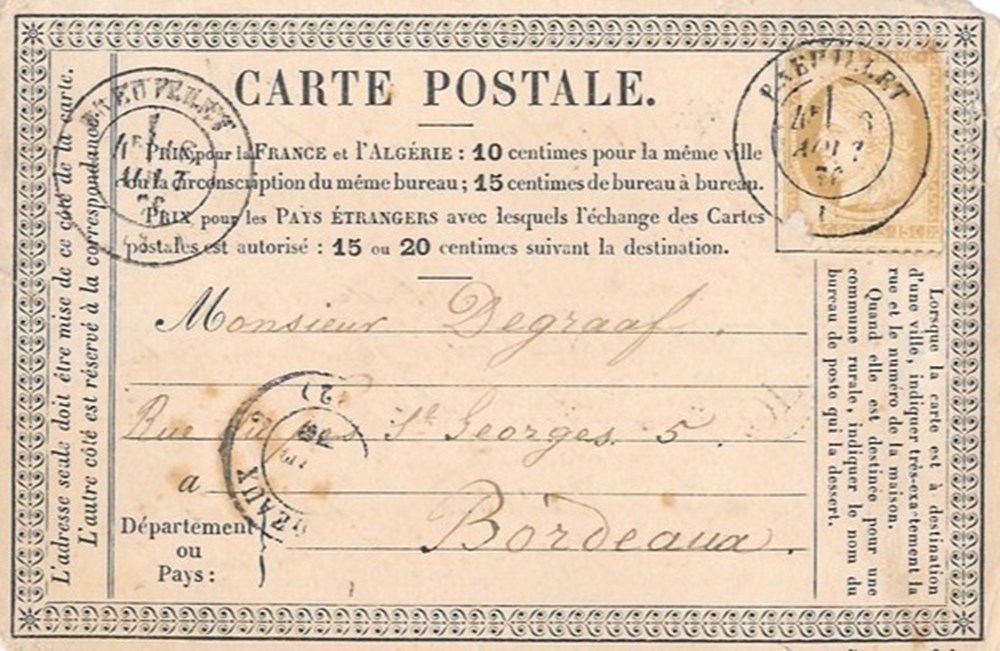 CARTE POSTALE.
PRIX pour la FRANCE et l'ALGÉRIE : 10 centimes pour la même ville
ou la circonscription du même bureau ; 15 centimes de bureau à bureau.
PRIX pour les PAYS ÉTRANGERS avec lesquels l'échange des Cartes
postales est autorisé : 15 ou 20 centimes suivant la destination.
Monsieur Degraaf.
Rue St Georges. 5.
a
Bordeaux.
Département
ou
Pays :
L'adresse seule doit être mise de ce côté de la carte.
L'autre côté est réservé à la correspondance.
Lorsque la carte est à destination
d'une ville, indiquer très-exactement la
rue et le numéro de la maison.
Quand elle est destinée pour une
commune rurale, indiquer le nom du
bureau de poste qui la dessert.